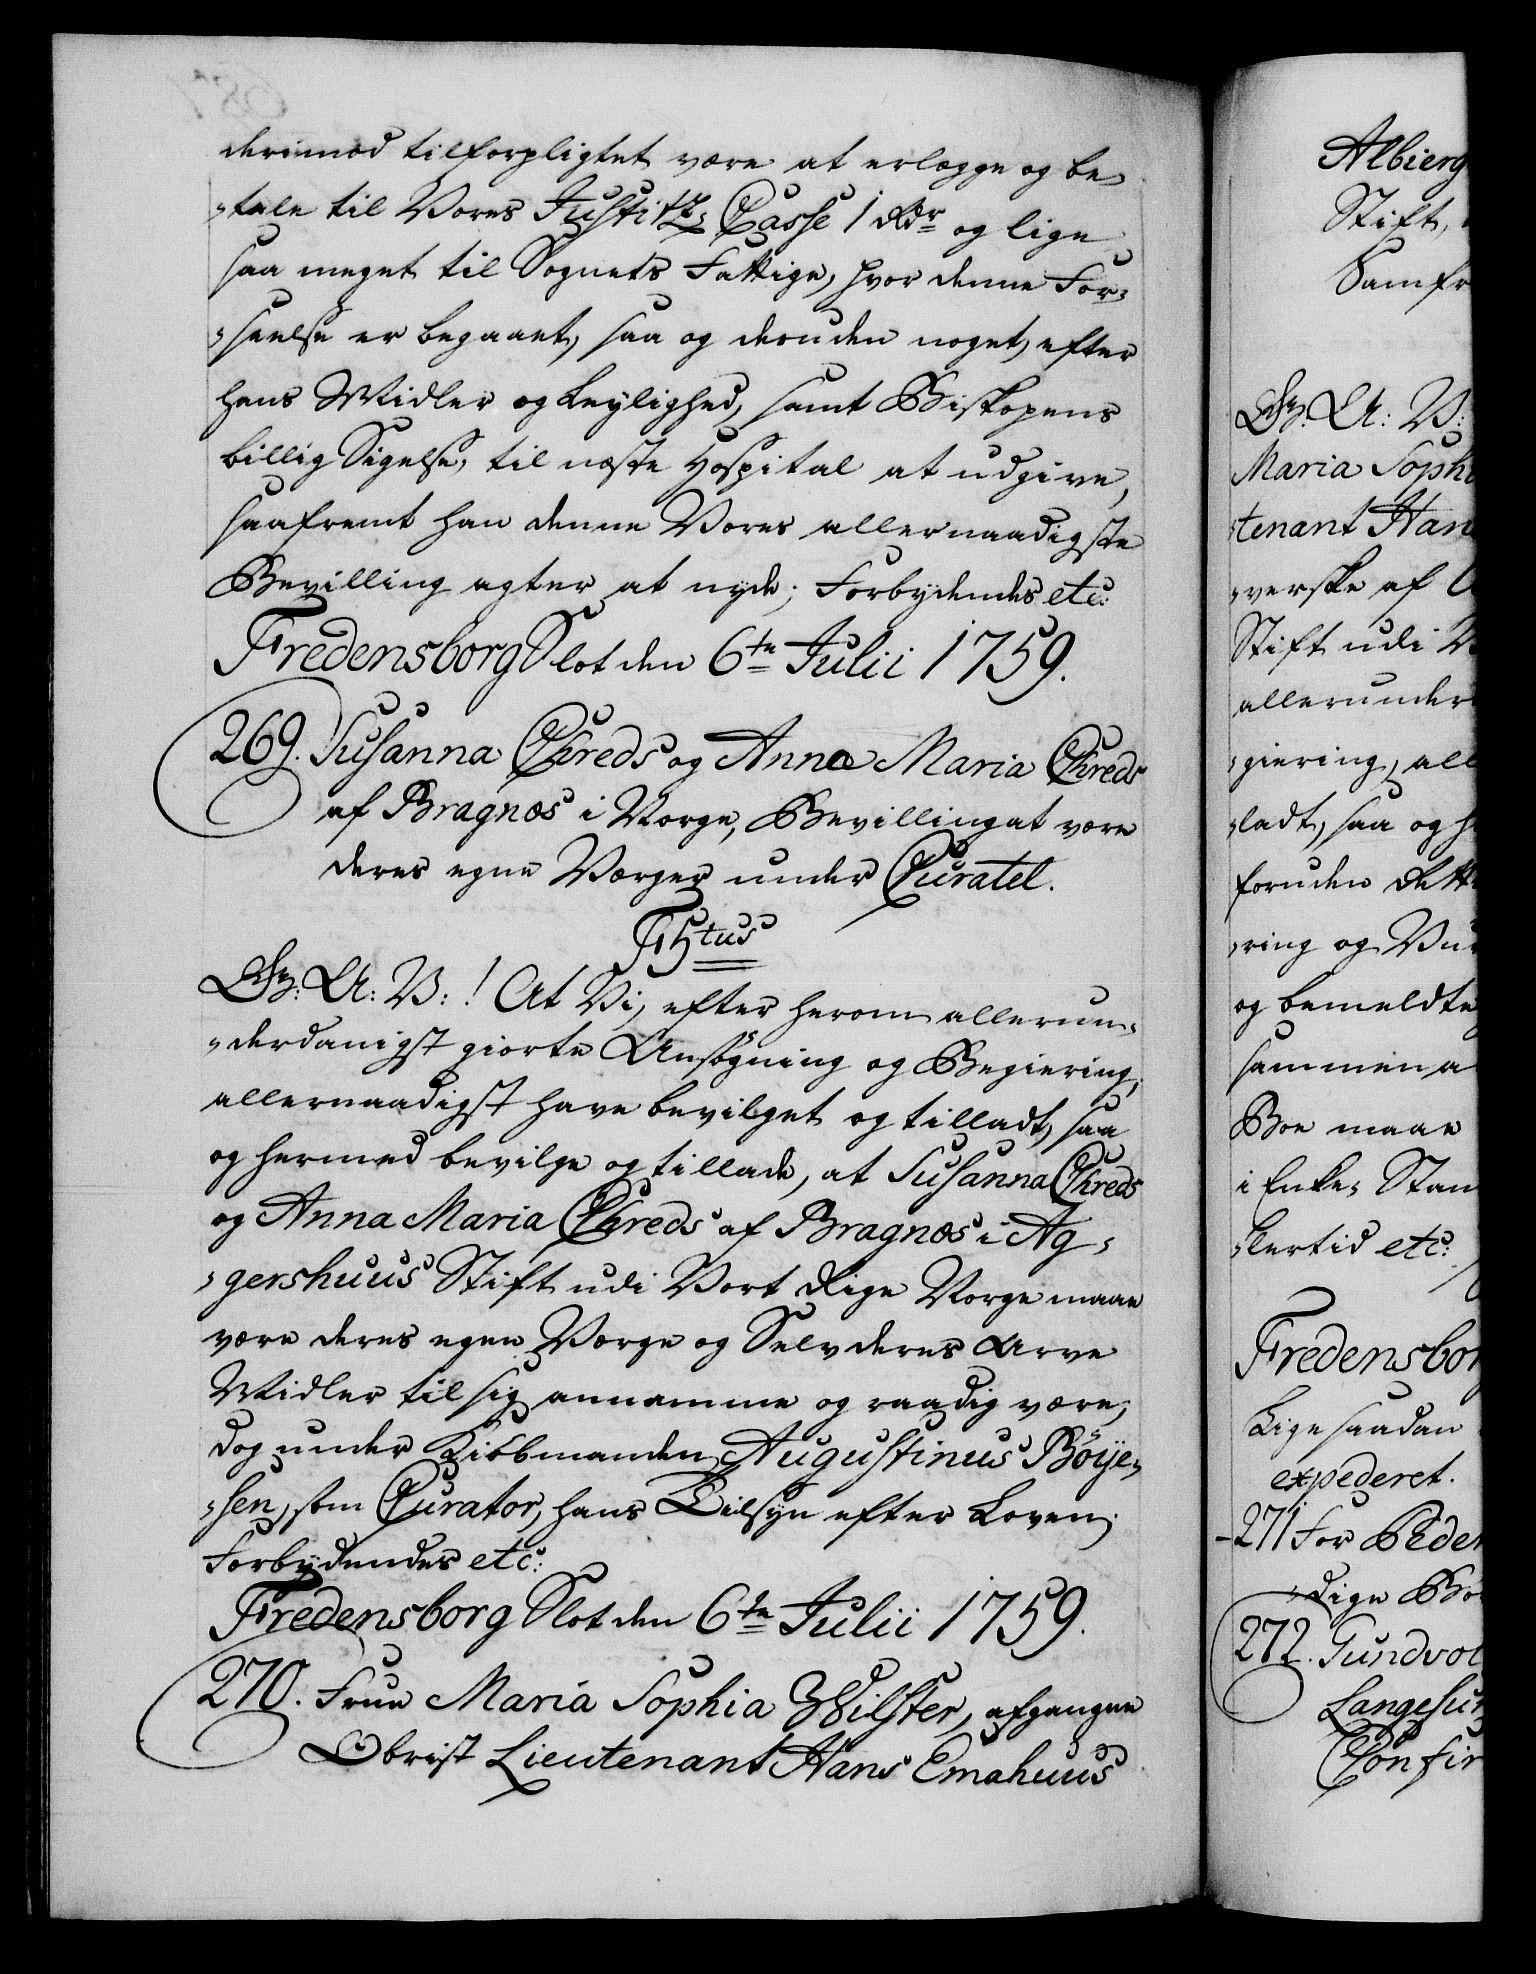 derimod tilforpligtet være at erlægge og be-
-tale til Vores Justitz Casse 1 Rdr og lige
saa meget til Sognets Fattige, hvor denne For-
-seelse er begaaet, saa og desuden noget, efter
hans Midler og Leylighed, samt Biskopens
billig Sigelse, til næste Hospital at udgive,
saafremt han denne Vores allernaadigste
Bevilling agter at nyde; Forbydendes etc:
Fredensborg Slot den 6te Julii 1759.
269. Susanna Chreds og Anna Maria Chreds
af Bragnæs i Norge, Bevilling at være
deres egne Værger under Curatel.
F 5tus
Gr: A: V: ! At Vi, efter herom allerun-
-derdanigst giorte Ansøgning og Begiering,
allernaadigst have bevilget og tilladt, saa
og hermed bevilge og tillade, at Susanna Chreds
og Anna Maria Chreds af Bragnæs i Ag-
-gershuus Stift udi Vort Rige Norge maae
være deres egen Værge og Selv deres Arve
Midler til sig annamme og raadig være,
dog under Kiöbmanden Augustinus Böye-
-sen, som Curator, hans Tilsyn efter Loven;
Forbydendes etc:
Fredensborg Slot den 6te Julii 1759.
270. Frue Maria Sophia Wilster, afgangne
Obrist Lieutenant Hans Emahuus
Albierg
Stift,
Samfr
Gr: A: V:
Maria Soph
-tenant Han
-verske af
Stift udi
allerunder
-giering, all
-ladt, saa og h
foruden dette
-ring og Vur
og bemeldte
sammen a
Boe maae
i Enke- Stan
-lertid etc:
Fredensbor
Lige saadan
expederet.
-271 For Peder
-dige Bo
272. Gundvol
Langesun
Confir